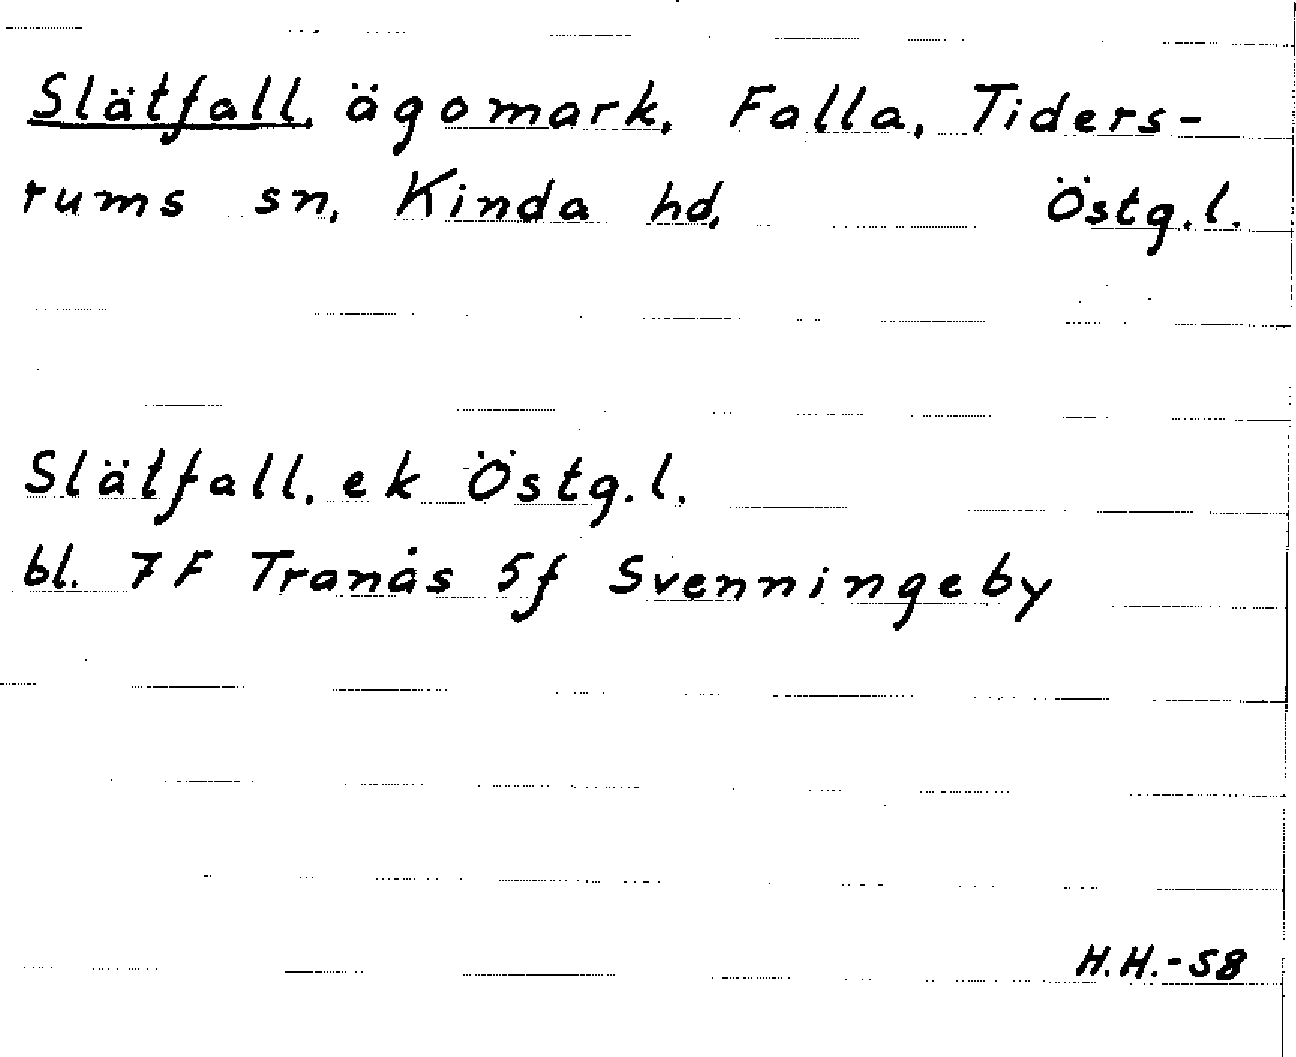 Slätfall, ägomark, Falla, Tiders-
rums sn, Kinda hd, Östg.l.
Slätfall, ek Östg.l.
bl. 7F Tranås 5f Svenningeby
H.H.-58